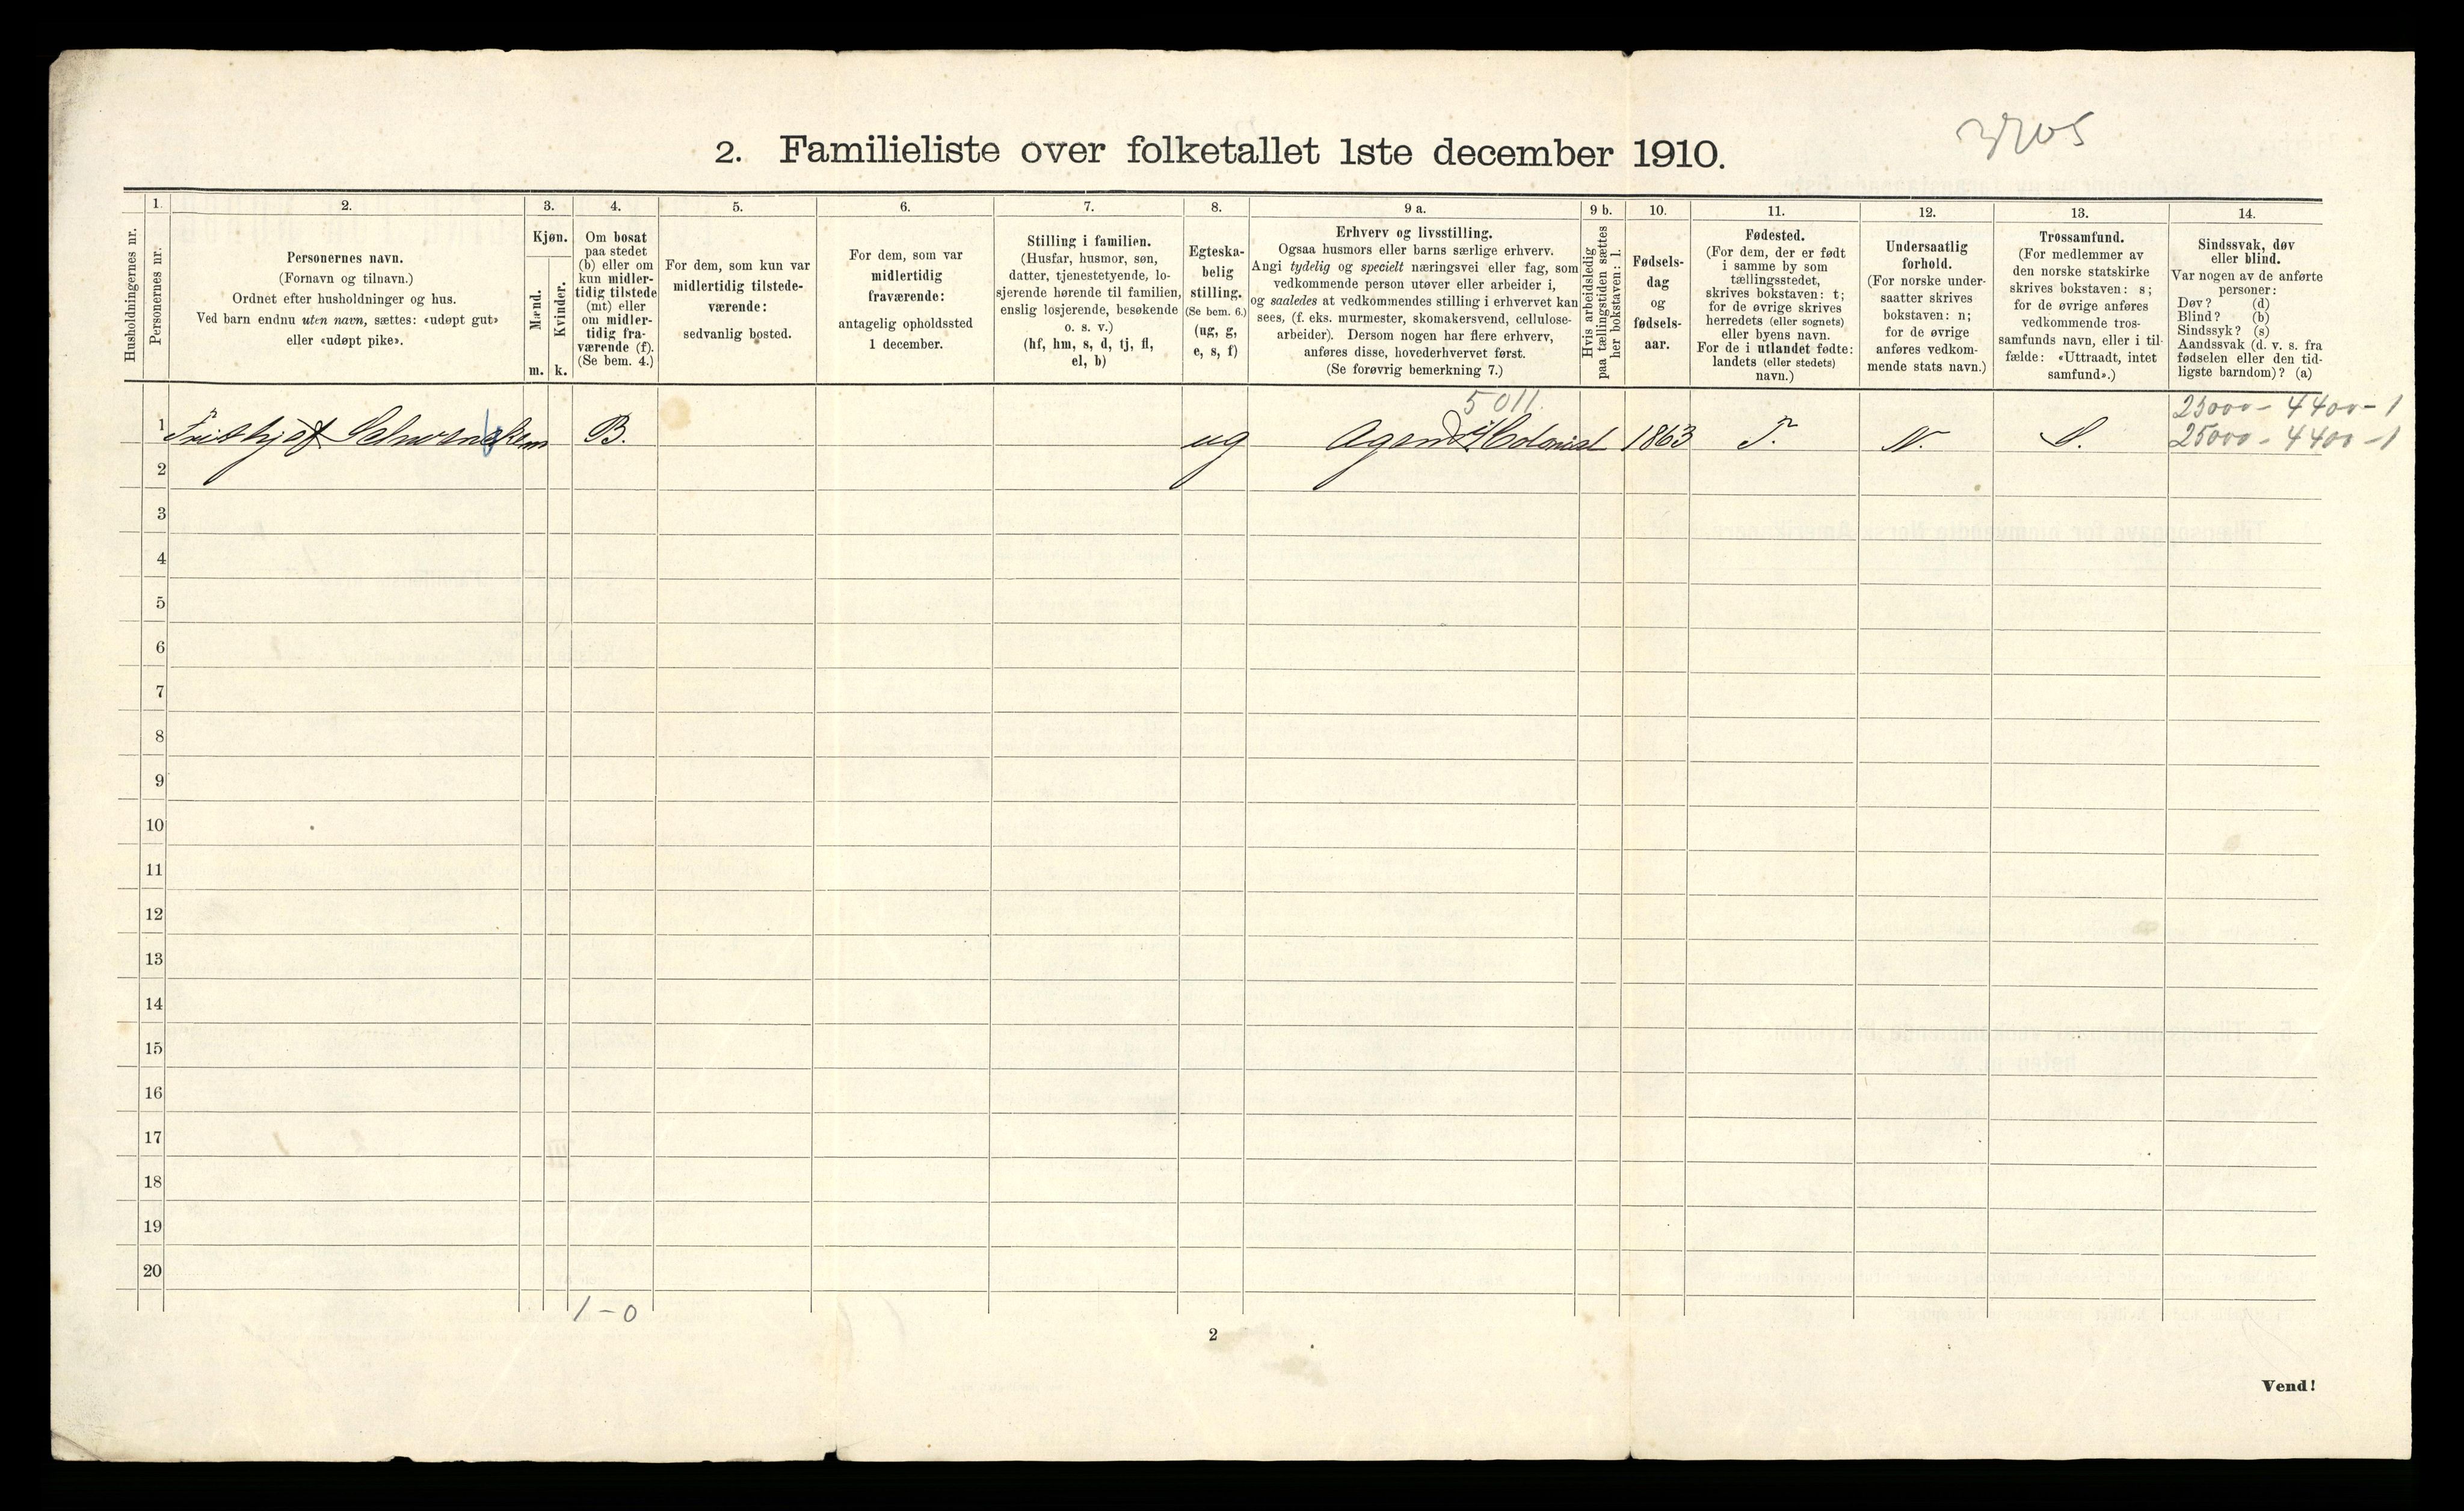 3705
2. Familieliste over folketallet 1ste december 1910.
Husholdningernes nr.
1.
Personernes nr.
2.
Personernes navn.
(Fornavn og tilnavn.)
Ordnet efter husholdninger og hus.
Ved barn endnu uten navn, sættes: «udøpt gut»
eller «udøpt pike».
3.
Kjøn.
Mænd.
Kvinder.
m. k.
4.
Om bosat
paa stedet
(b) eller om
kun midler-
tidig tilstede
(mt) eller
om midler-
tidig fra-
værende (f).
(Se bem. 4.)
5.
For dem, som kun var
midlertidig tilstede-
værende:
sedvanlig bosted.
6.
For dem, som var
midlertidig
fraværende:
antagelig opholdssted
1 december.
7.
Stilling i familien.
(Husfar, husmor, søn,
datter, tjenestetyende, lo-
sjerende hørende til familien,
enslig losjerende, besøkende
o. s. v.)
(hf, hm, s, d, tj, fl,
el, b)
8.
Egteska-
belig
stilling.
(Se bem. 6.)
(ug, g,
e, s, f)
9 a.
Erhverv og livsstilling.
Ogsaa husmors eller barns særlige erhverv.
Angi tydelig og specielt næringsvei eller fag, som
vedkommende person utøver eller arbeider i,
og saaledes at vedkommendes stilling i erhvervet kan
sees, (f. eks. murmester, skomakersvend, cellulose-
arbeider). Dersom nogen har flere erhverv,
anføres disse, hovederhvervet først.
(Se forøvrig bemerkning 7.)
9 b.
Hvis arbeidsledig
paa tællingstiden sættes
her bokstaven: l.
10.
Fødsels-
dag
og
fødsels-
aar.
11.
Fødested.
(For dem, der er født
i samme by som
tællingsstedet,
skrives bokstaven: t;
for de øvrige skrives
herredets (eller sognets)
eller byens navn.
For de i utlandet fødte:
landets (eller stedets)
navn.)
12.
Undersaatlig
forhold.
(For norske under-
saatter skrives
bokstaven: n;
for de øvrige
anføres vedkom-
mende stats navn.)
13.
Trossamfund.
(For medlemmer av
den norske statskirke
skrives bokstaven: s;
for de øvrige anføres
vedkommende tros-
samfunds navn, eller i til-
fælde: «Uttraadt, intet
samfund».)
14.
Sindssvak, døv
eller blind.
Var nogen av de anførte
personer:
Døv? (d)
Blind? (b)
Sindssyk? (s)
Aandssvak (d. v. s. fra
fødselen eller den tid-
ligste barndom)? (a)
5011.
25000 - 4400 - 1
1 Frithjof B. ug Agent i Colonial 1863 T. N. S. 25000 - 4400 - 1
2
3
4
5
6
7
8
9
10
11
12
13
14
15
16
17
18
19
20
1 - 0
2
Vend!